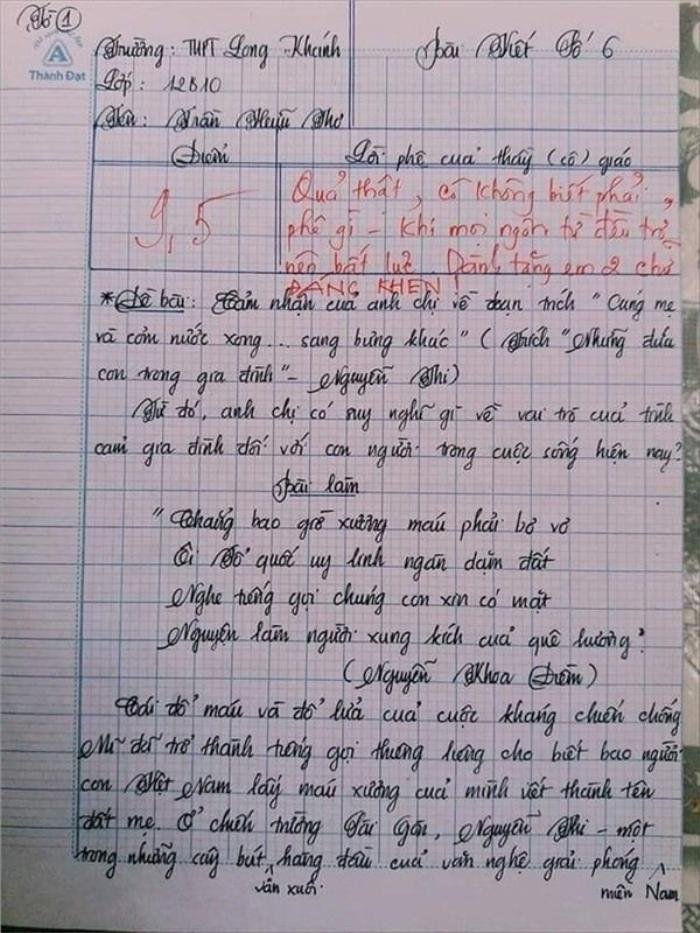 Tờ 1
Thành Đạt
Trường: THPT Long Khánh
Bài Viết Số 6
Lớp: 12B10
Tên: Trần Hữu Thơ
Điểm
Lời phê của thầy (cô) giáo
9,5
Quả thật, cô không biết phải
phê gì - khi mọi ngôn từ đều trở
nên bất lực. Dành tặng em 2 chữ
ĐÁNG KHEN!
*Đề bài: Cảm nhận của anh chị về đoạn trích "Cúng mẹ
và cơm nước xong... sang bưng khác" (Trích "Những đứa
con trong gia đình" - Nguyễn Thi)
Từ đó, anh chị có suy nghĩ gì về vai trò của tình
cảm gia đình đối với con người trong cuộc sống hiện nay?
Bài làm
"Chẳng bao giờ xương máu phải bơ vơ
Ôi Tổ quốc uy linh ngàn dặm đất
Nghe tiếng gọi chung con xin có mặt
Nguyện làm người xung kích của quê hương"
(Nguyễn Khoa Điềm)
Cái đổ máu và đổ lửa của cuộc kháng chiến chống
Mĩ đã trở thành tiếng gọi thương liêng cho biết bao người
con Việt Nam lấy máu xương của mình viết thành tên
đất mẹ. Ở chiến trường Sài Gòn, Nguyễn Thi - một
trong những cây bút hàng đầu của văn nghệ giải phóng
văn xuôi.
miền Nam